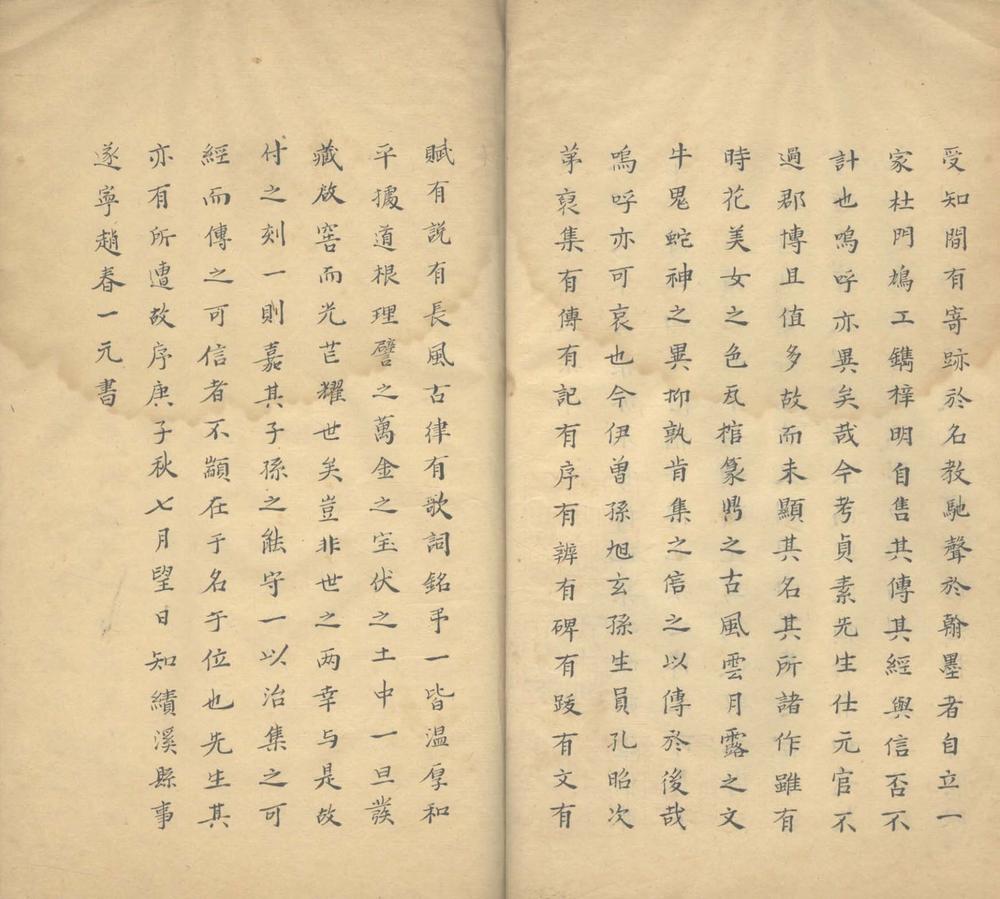 受知間有寄跡於名教馳聲於翰墨者自立一
家杜門鳩工鐫梓明自售其傳其經與信否不
計也嗚呼亦異矣哉今考貞素先生仕元官不
過郡博且值多故而未顯其名其所諸作雖有
時花美女之色瓦棺篆鼎之古風雲月露之文
牛鬼蛇神之異抑孰肯集之信之以傳於後哉
嗚呼亦可哀也今伊曽孫旭玄孫生員孔昭次
苐裒集有傳有記有序有辨有碑有跋有文有
賦有說有長風古律有歌詞銘弔一皆温厚和
平據道根理譬之萬金之宝伏之土中一旦發
藏啟窖而光芒耀世矣豈非世之两幸与是故
付之刻一則嘉其子孫之能守一以治集之可
經而傳之可信者不顓在于名于位也先生其
亦有所遭故序庚子秋七月望日知績溪縣事
遂寧趙春一元書